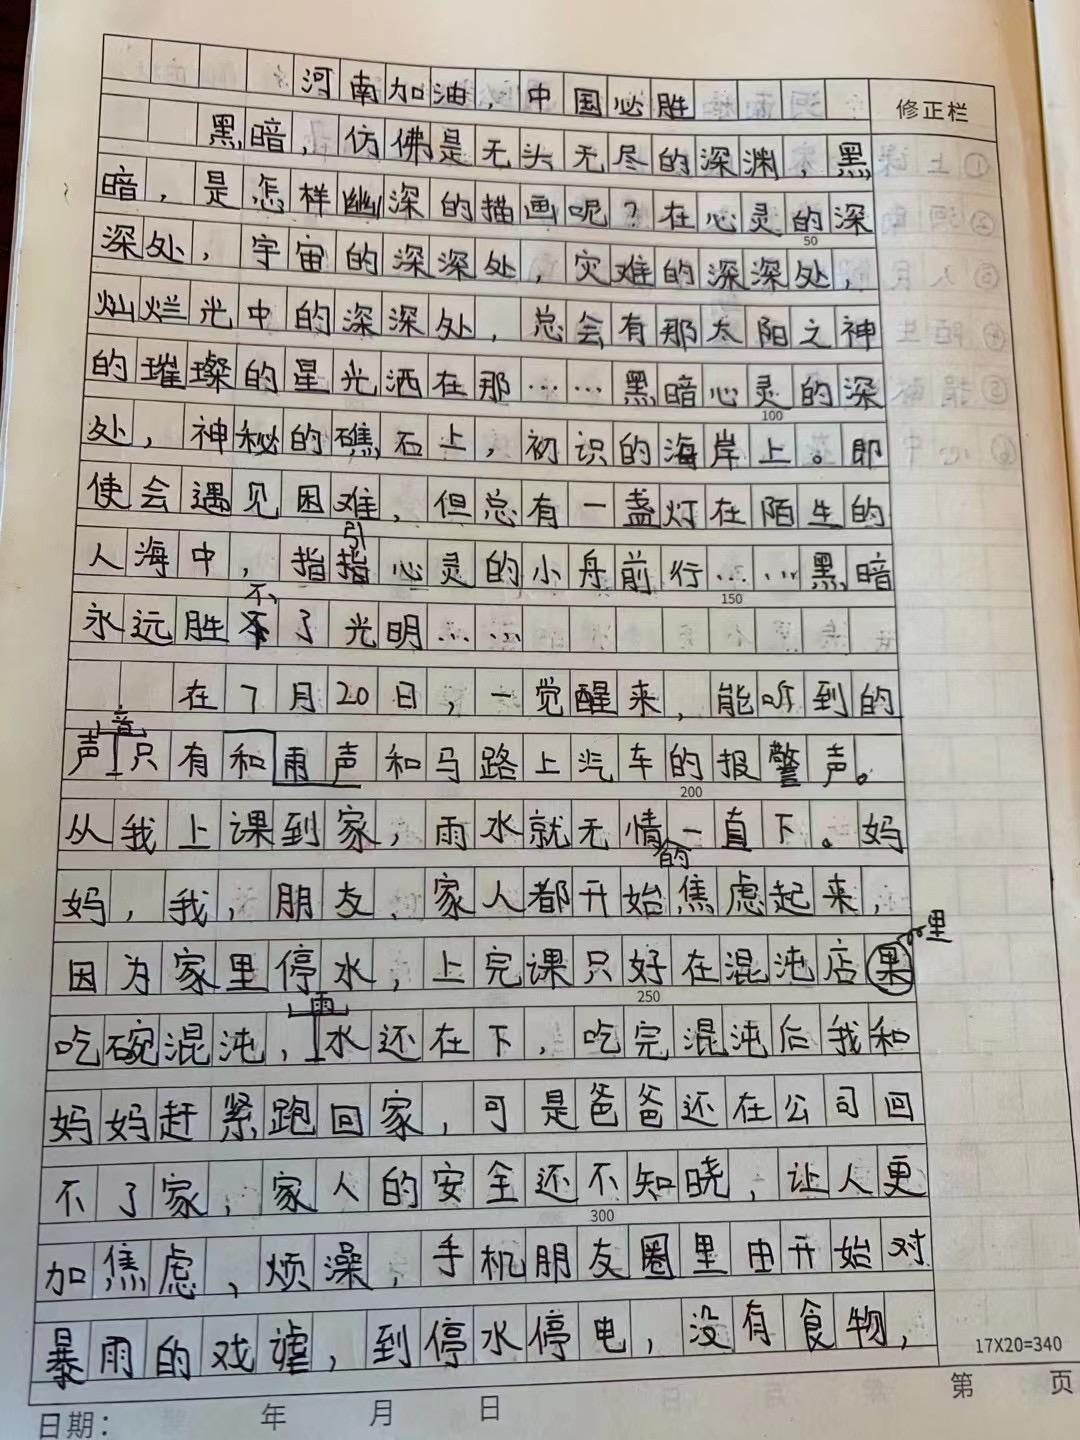 河南加油，中国必胜
修正栏
黑暗，仿佛是无头无尽的深渊，黑
暗，是怎样幽深的描画呢？在心灵的深
50
深处，宇宙的深深处，灾难的深深处，
灿烂光中的深深处，总会有那太阳之神
的璀璨的星光洒在那……黑暗心灵的深
100
处，神秘的礁石上，初识的海岸上。即
使会遇见困难，但总有一盏灯在陌生的
引
人海中，指指心灵的小舟前行……黑暗
150
不
永远胜不了光明……
在7月20日，一觉醒来，能听到的
音
声只有和雨声和马路上汽车的报警声。
200
从我上课到家，雨水就无情一直下。妈
的
妈，我，朋友、家人都开始焦虑起来，
里
因为家里停水，上完课只好在混沌店果
250
雨
吃碗混沌，水还在下，吃完混沌后我和
妈妈赶紧跑回家，可是爸爸还在公司回
不了家，家人的安全还不知晓，让人更
300
加焦虑、烦澡，手机朋友圈里由开始对
暴雨的戏谑，到停水停电，没有食物，
17X20=340
日期： 年 月 日
第 页